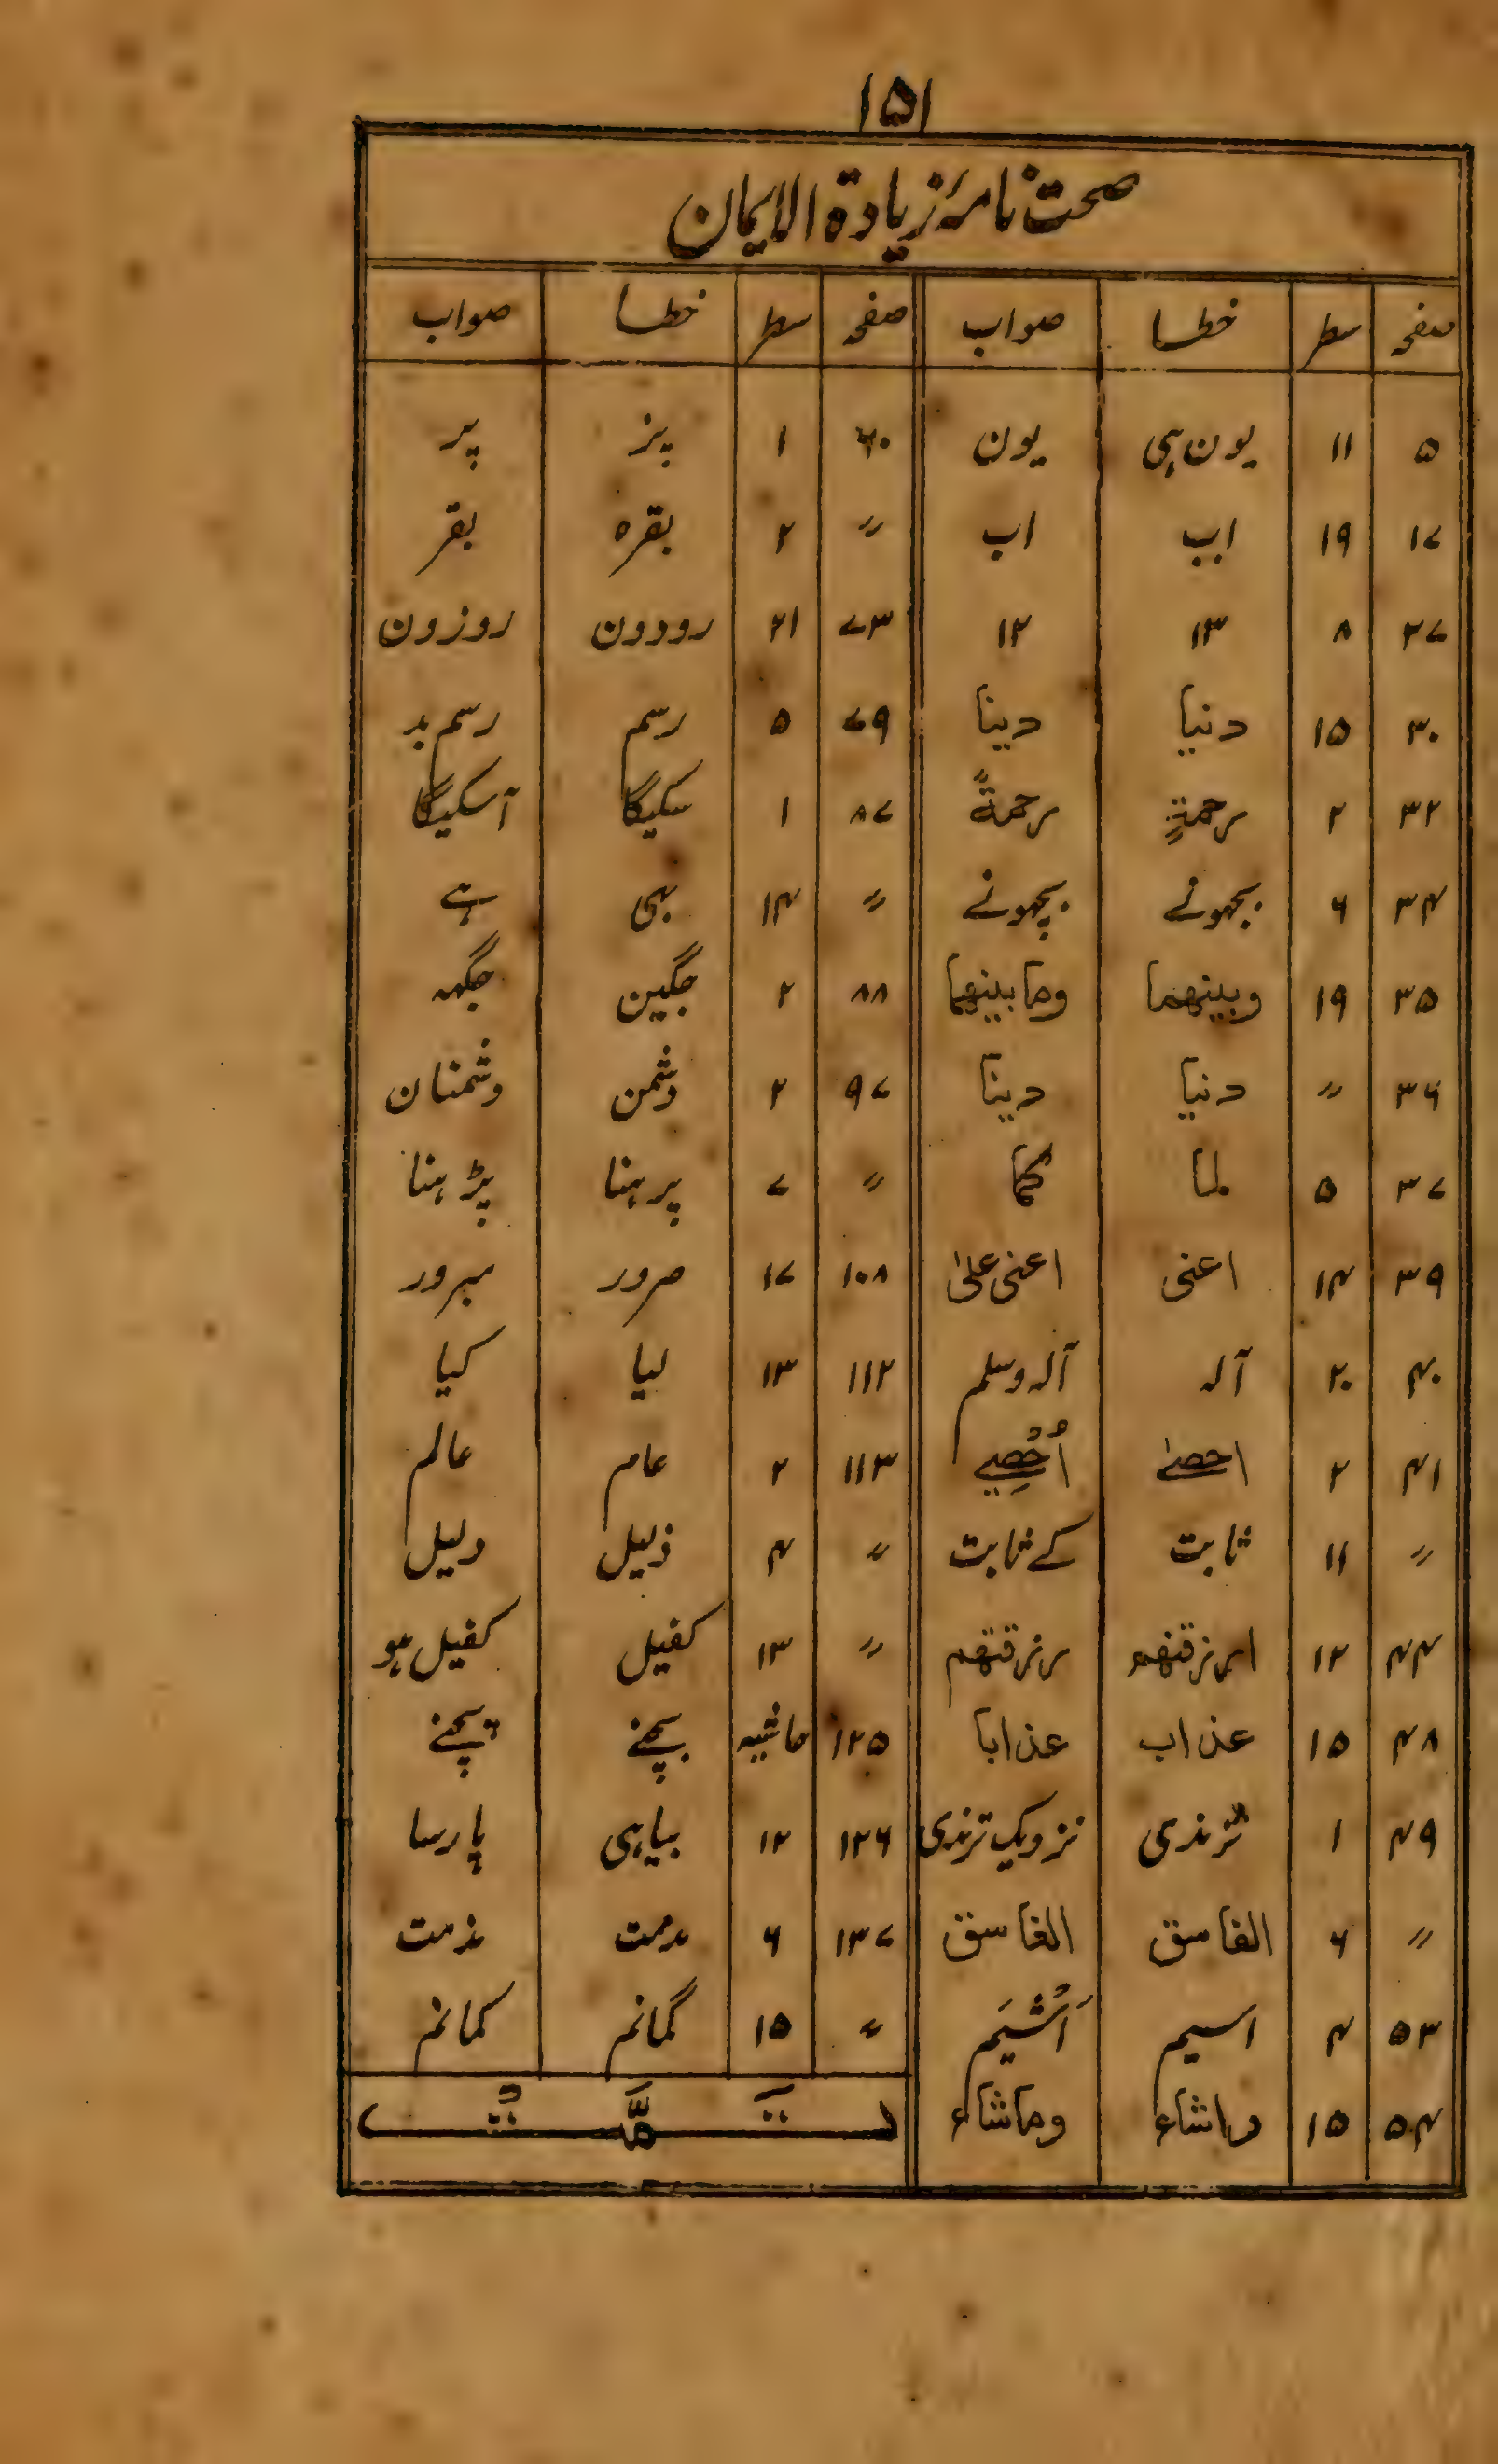 ۱۵۱
صحت نامۂ زیادة الایمان
صفحہ سطر خطا صواب صفحہ سطر خطا صواب
۵ ۱۱ یون ہی یون ۶۰ ۱ پز پر
۱۷ ۱۹ ابب اب 〃 ۲ بقرہ بقر
۲۷ ۸ ۱۳ ۱۲ ۷۳ ۲۱ رودون روزون
۳۰ ۱۵ دنیا دینا ۷۹ ۵ رسم رسم بد
۳۲ ۲ رحمةٍ رحمةً ۸۷ ۱ سکیگا آسکیگا
۳۴ ۶ بجھونے بچھونے 〃 ۱۴ ہی ہے
۳۵ ۱۹ وبینھما وما بینھما ۸۸ ۲ جگہین جگہہ
۳۶ 〃 دنیا دینا ۹۷ ۲ دشمن دشمنان
۳۷ ۵ لما کما 〃 ۷ پرہنا پڑہنا
۳۹ ۱۴ اعنی اعنی علیٰ ۱۰۸ ۱۷ مرور مبرور
۴۰ ۲۰ آلہ آلہ وسلم ۱۱۲ ۱۳ لیا کیا
۴۱ ۲ احصے اُحْصِیْ ۱۱۳ ۲ عام عالم
〃 ۱۱ ثابت کے ثابت 〃 ۴ ذلیل دلیل
۴۴ ۱۲ ارزقنھم رزقتھم 〃 ۱۳ کفیل کفیل ہو
۴۸ ۱۵ عذاب عذابا ۱۲۵ حاشیہ
۴۹ ۱ ترندی نزدیک ترندی ۱۲۶ ۱۲ بیاہی پارسا
〃 ۶ الفاسق الغاسق ۱۳۷ ۶ مدمت مذمت
۵۳ ۴ اسیم اَشْیَم 〃 ۱۵ گمانم کمانم
۵۴ ۱۵ وماشاء
تَمَّتْ